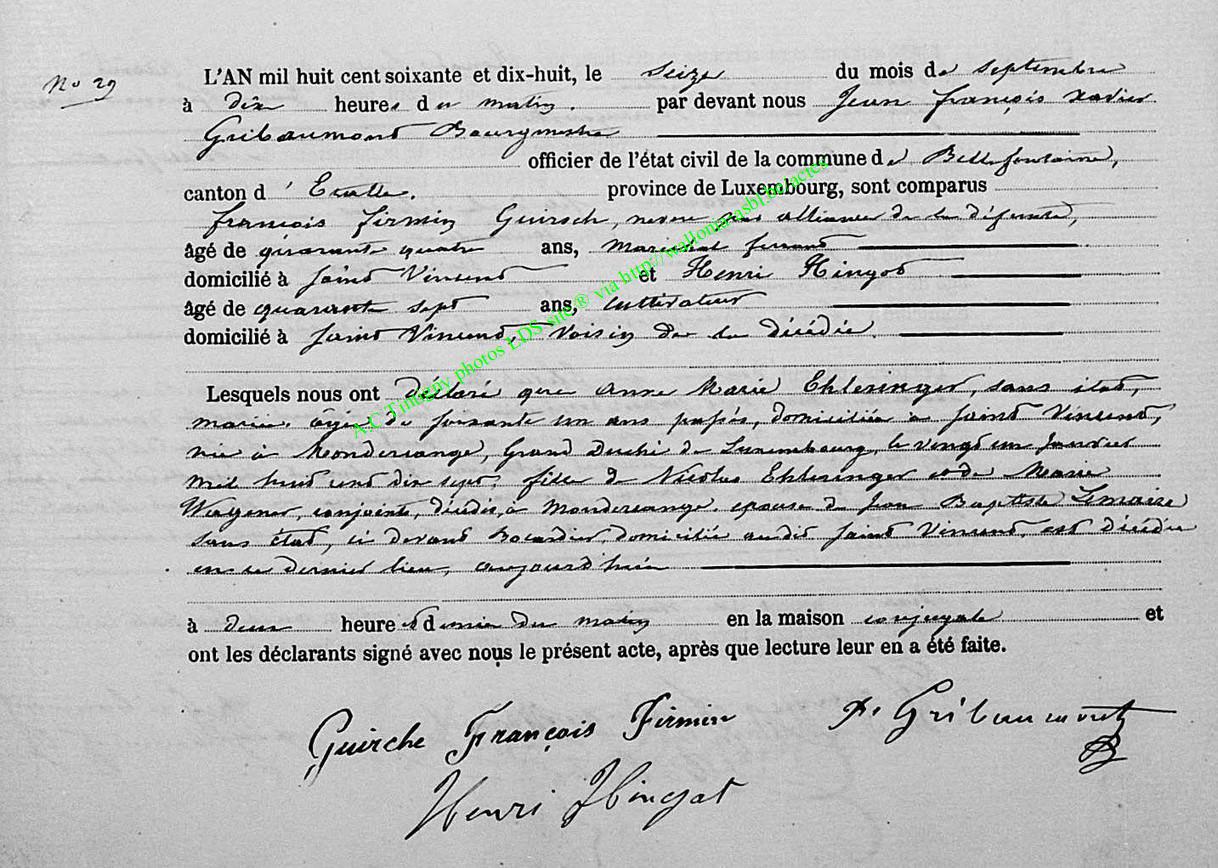 No 29
L'AN mil huit cent soixante et dix-huit, le seize du mois de septembre
à dix heures du matin. par devant nous Jean françois xavier
Gribaumont Bourgmestre
officier de l'état civil de la commune de Bellefontaine,
canton d'Etalle. province de Luxembourg, sont comparus
françois firmin Guirsch, neveu par alliance de la défunte,
âgé de quarante quatre ans, marechal ferrant
domicilié à Saint Vincent et Henri Hingot
âgé de quarante sept ans, cultivateur
domicilié à Saint Vincent, voisin de la décédée.
Lesquels nous ont déclaré que Anne Marie Ehleringer, sans état,
mariée, âgée de soixante un ans passés, domiciliée à Saint Vincent,
née à Mondercange, Grand Duché de Luxembourg, le vingt un Janvier
mil huit cent dix sept, fille de Nicolas Ehleringer et de Marie
Wagener, conjoints, décédés à Mondercange, épouse de Jean Baptiste Lemaire
sans état, ci devant Bocardier, domicilié audit Saint Vincent, est décédée
en ce dernier lieu, aujourd'hui
à deux heures et demie du matin en la maison conjugale et
ont les déclarants signé avec nous le présent acte, après que lecture leur en a été faite.
Guirche François Firmin Gribaumont
Henri Hingot
A.C Tintigny photos EDS site® via http://wallonia.asbl.be/actes